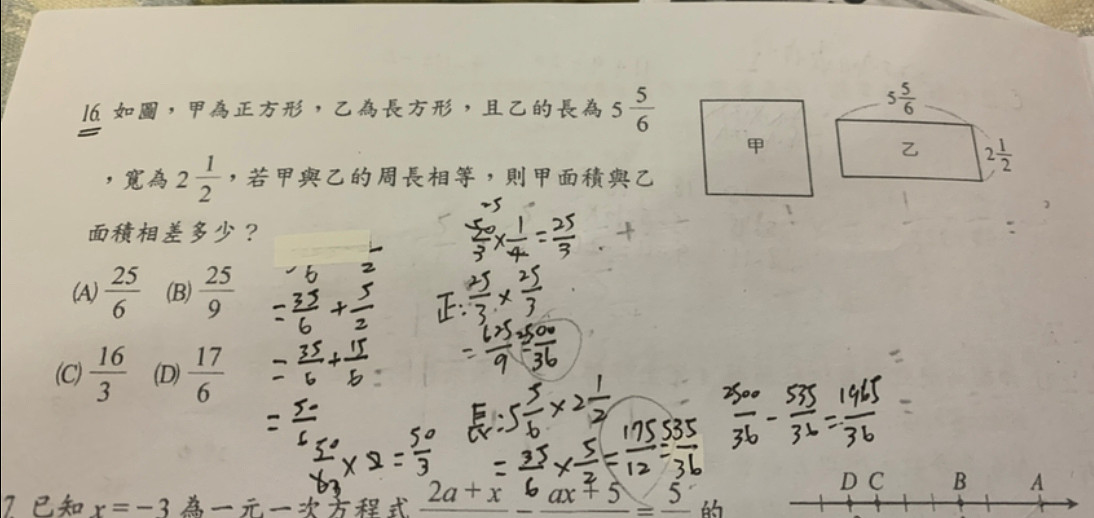 16. 如圖，甲為正方形，乙為長方形，且乙的長為 5 5/6
，寬為 2 1/2，若甲與乙的周長相等，則甲面積與乙
面積相差多少？
(A) 25/6 (B) 25/9
(C) 16/3 (D) 17/6
甲
5 5/6
乙
2 1/2
= 35/6 + 5/2
= 35/6 + 15/6
= 50/6
50/6 3 × 2 = 50/3
25
50/3 × 1/4 = 25/3
正: 25/3 × 25/3
= 625/9 = 2500/36
長: 5 5/6 × 2 1/2
= 35/6 × 5/2 = 175/12 = 535/36
2500/36 - 535/36 = 1965/36
D C B A
7. 已知 x = -3 為一元一次方程式 2a + x - ax + 5 = 5 的